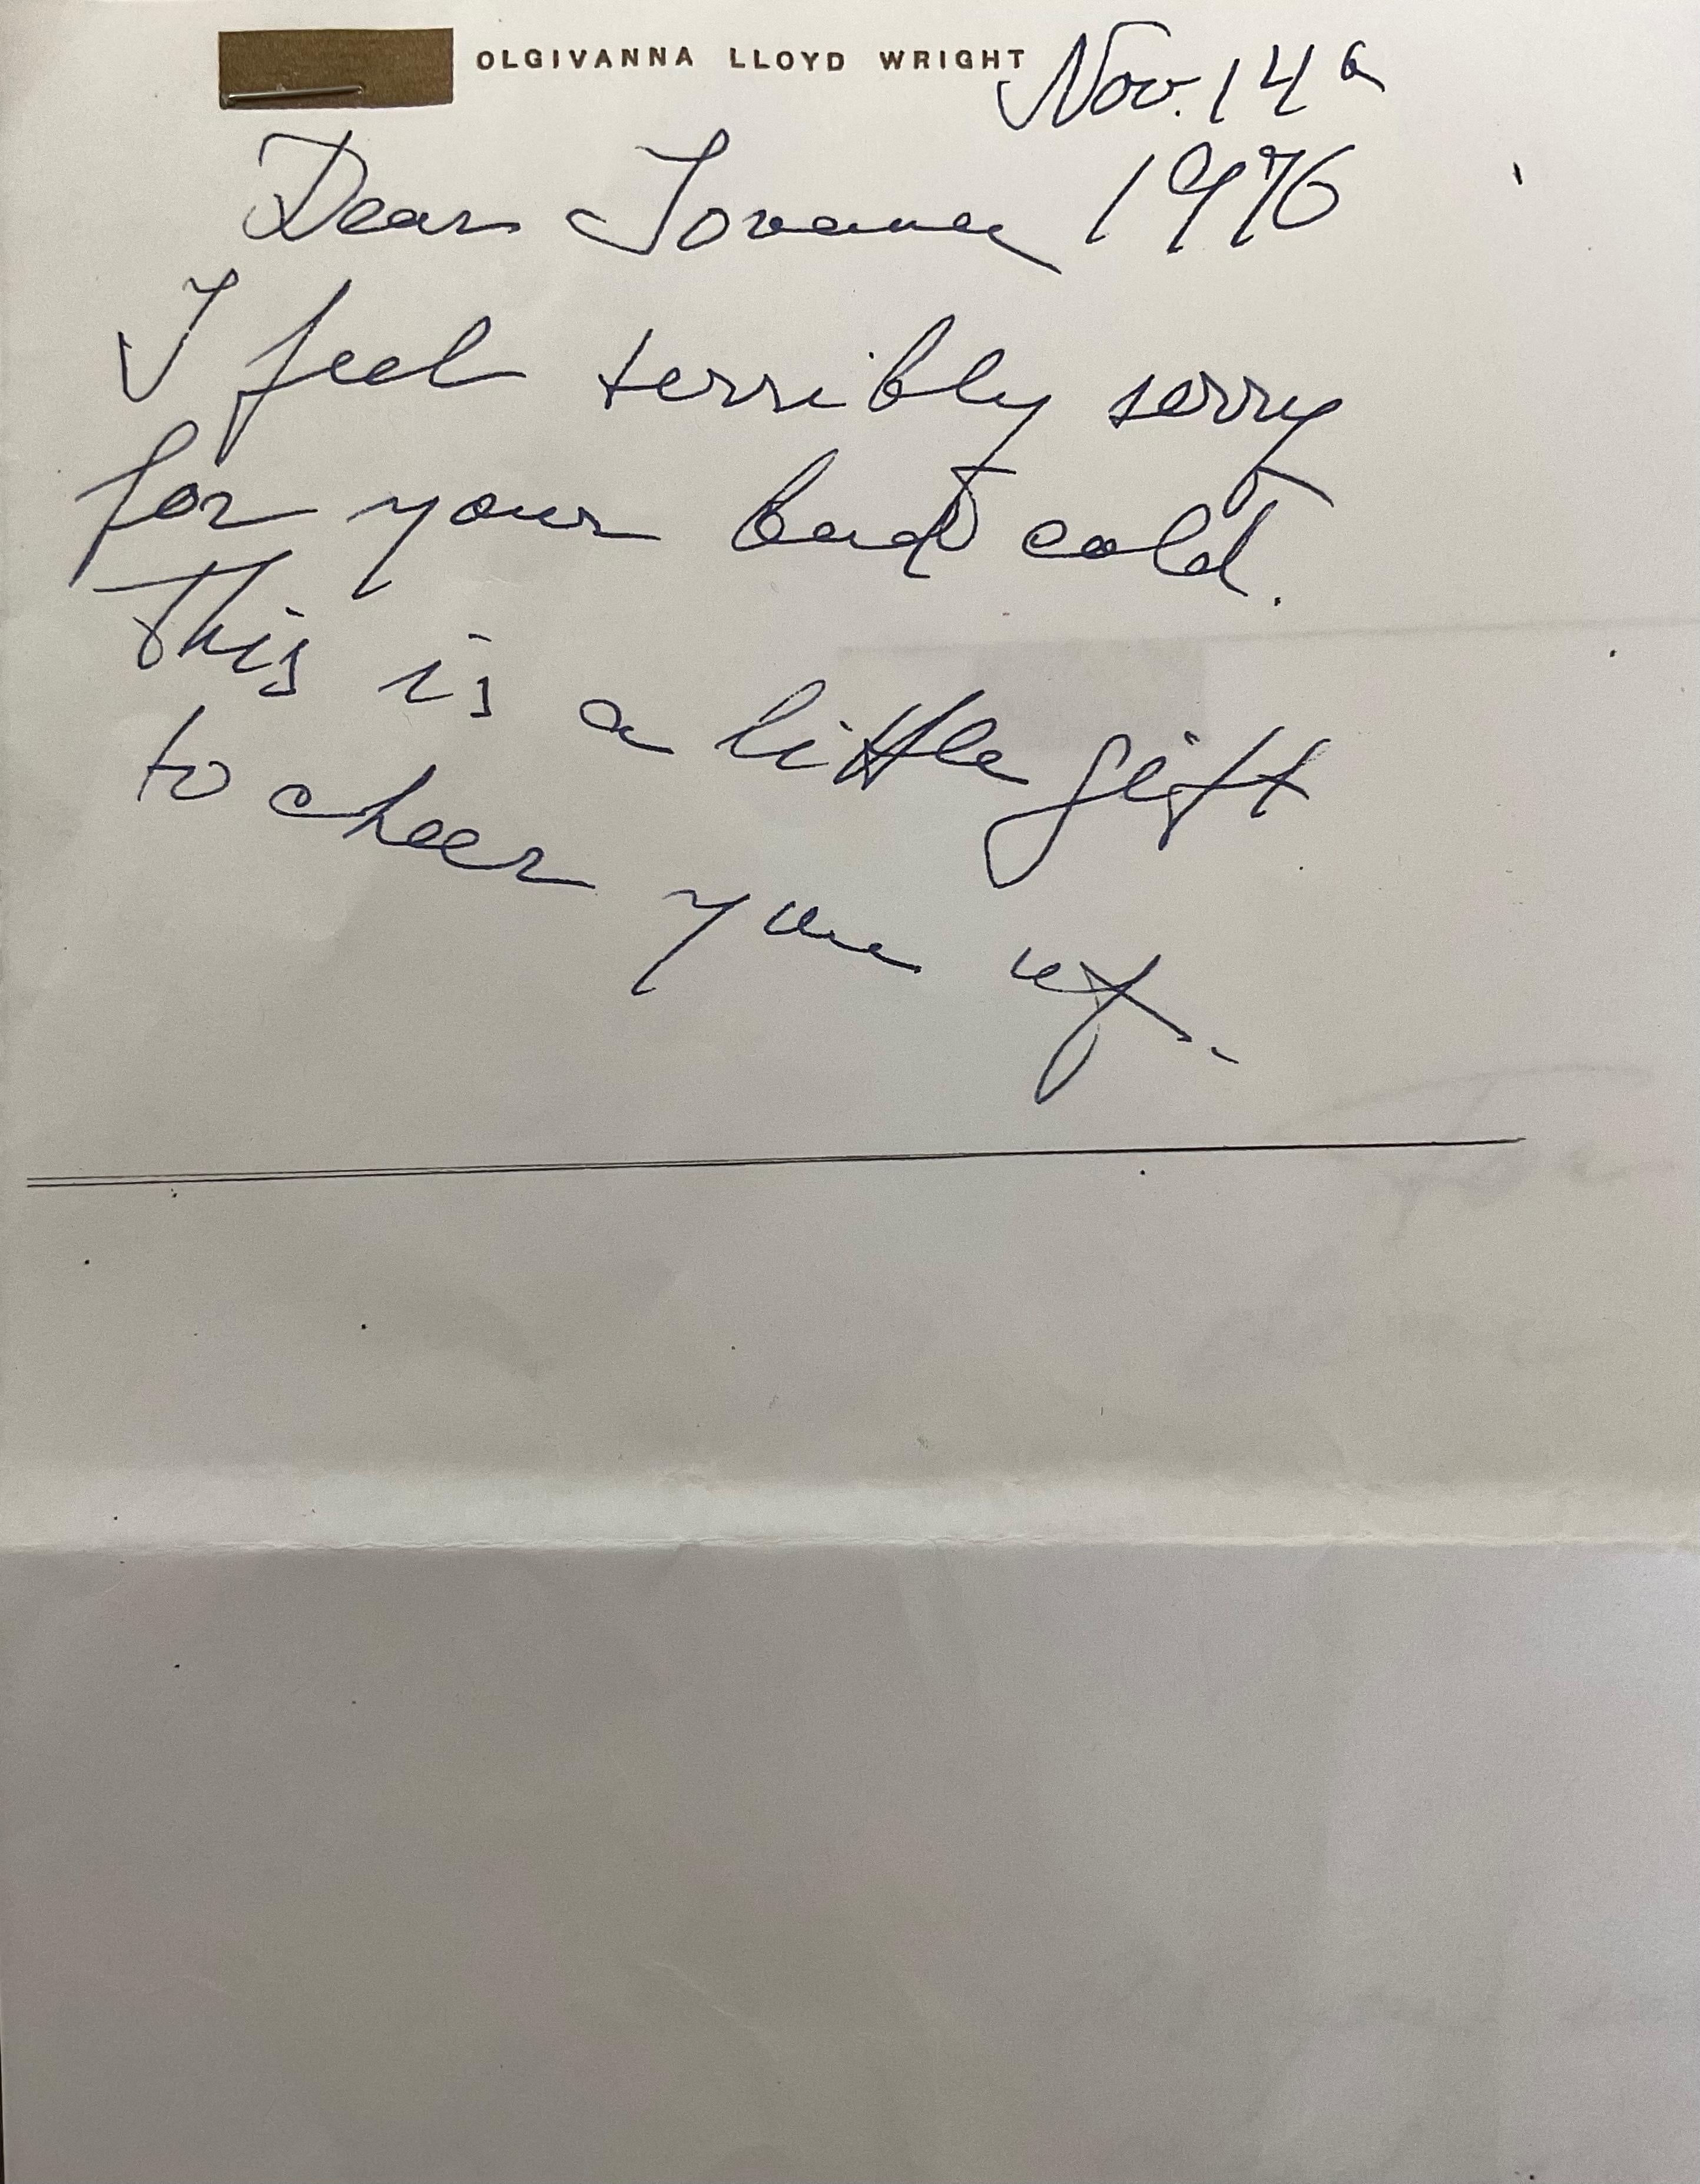 OLGIVANNA LLOYD WRIGHT
Nov. 14th
Dear Iovanna 1976
I feel terribly sorry
for your bad cold.
This is a little gift
to cheer you up.